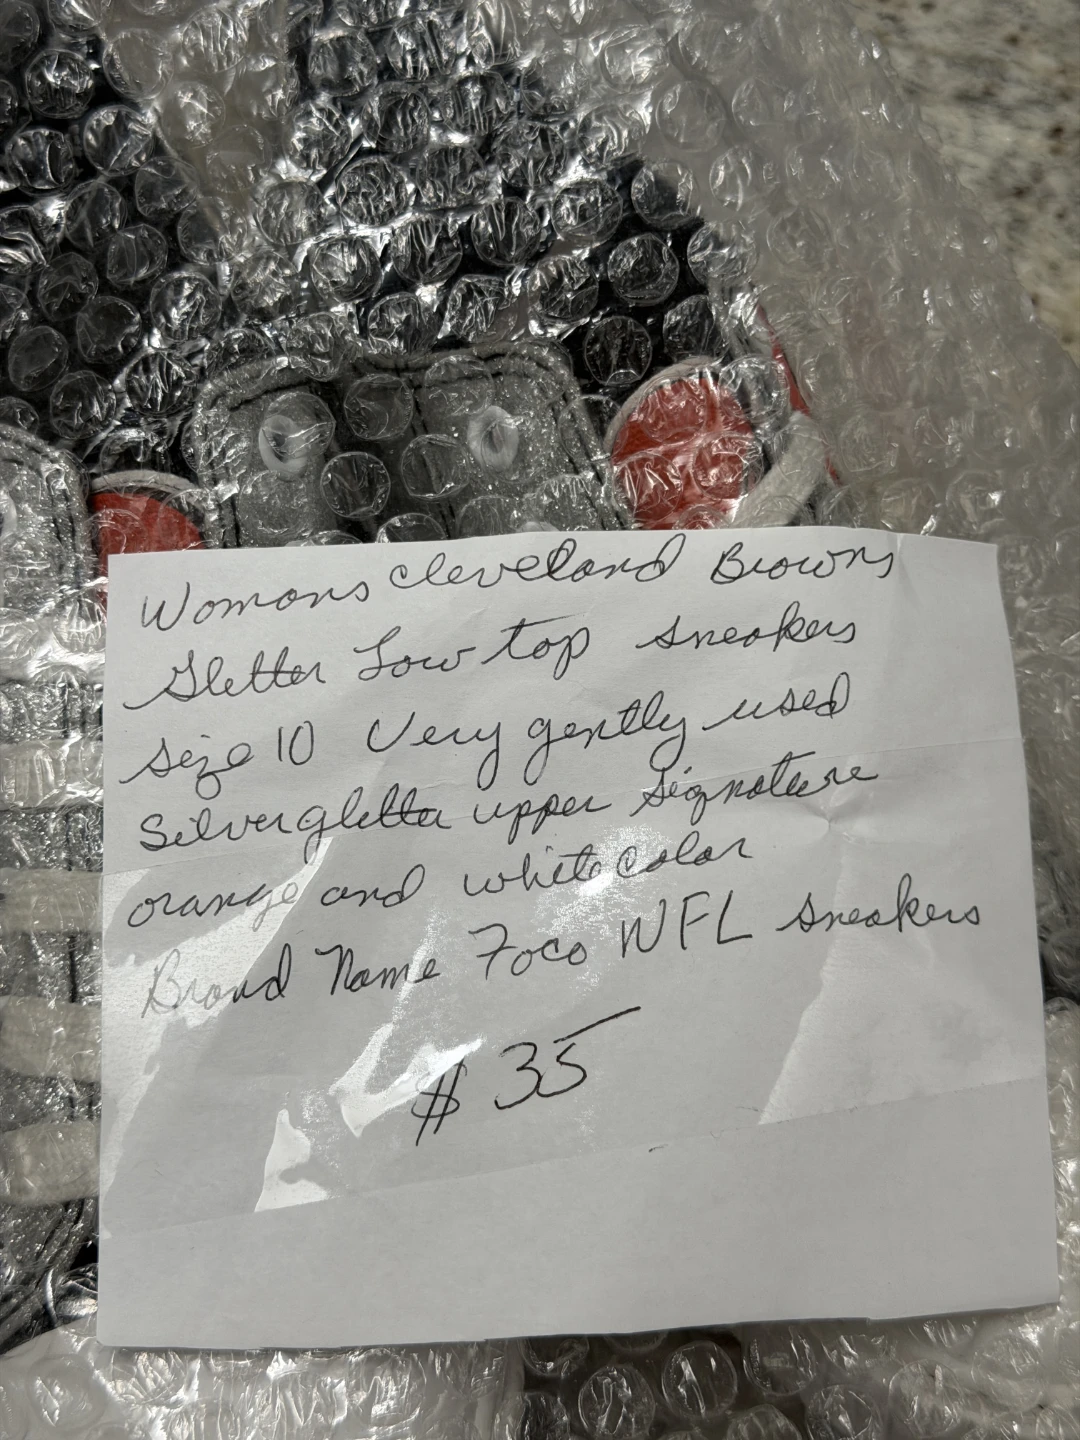 Womans Cleveland Browns
Glitter Low top sneakers
size 10 Very gently used
Silver glitter upper signature
orange and white color
Brand Name Foco NFL sneakers
$35